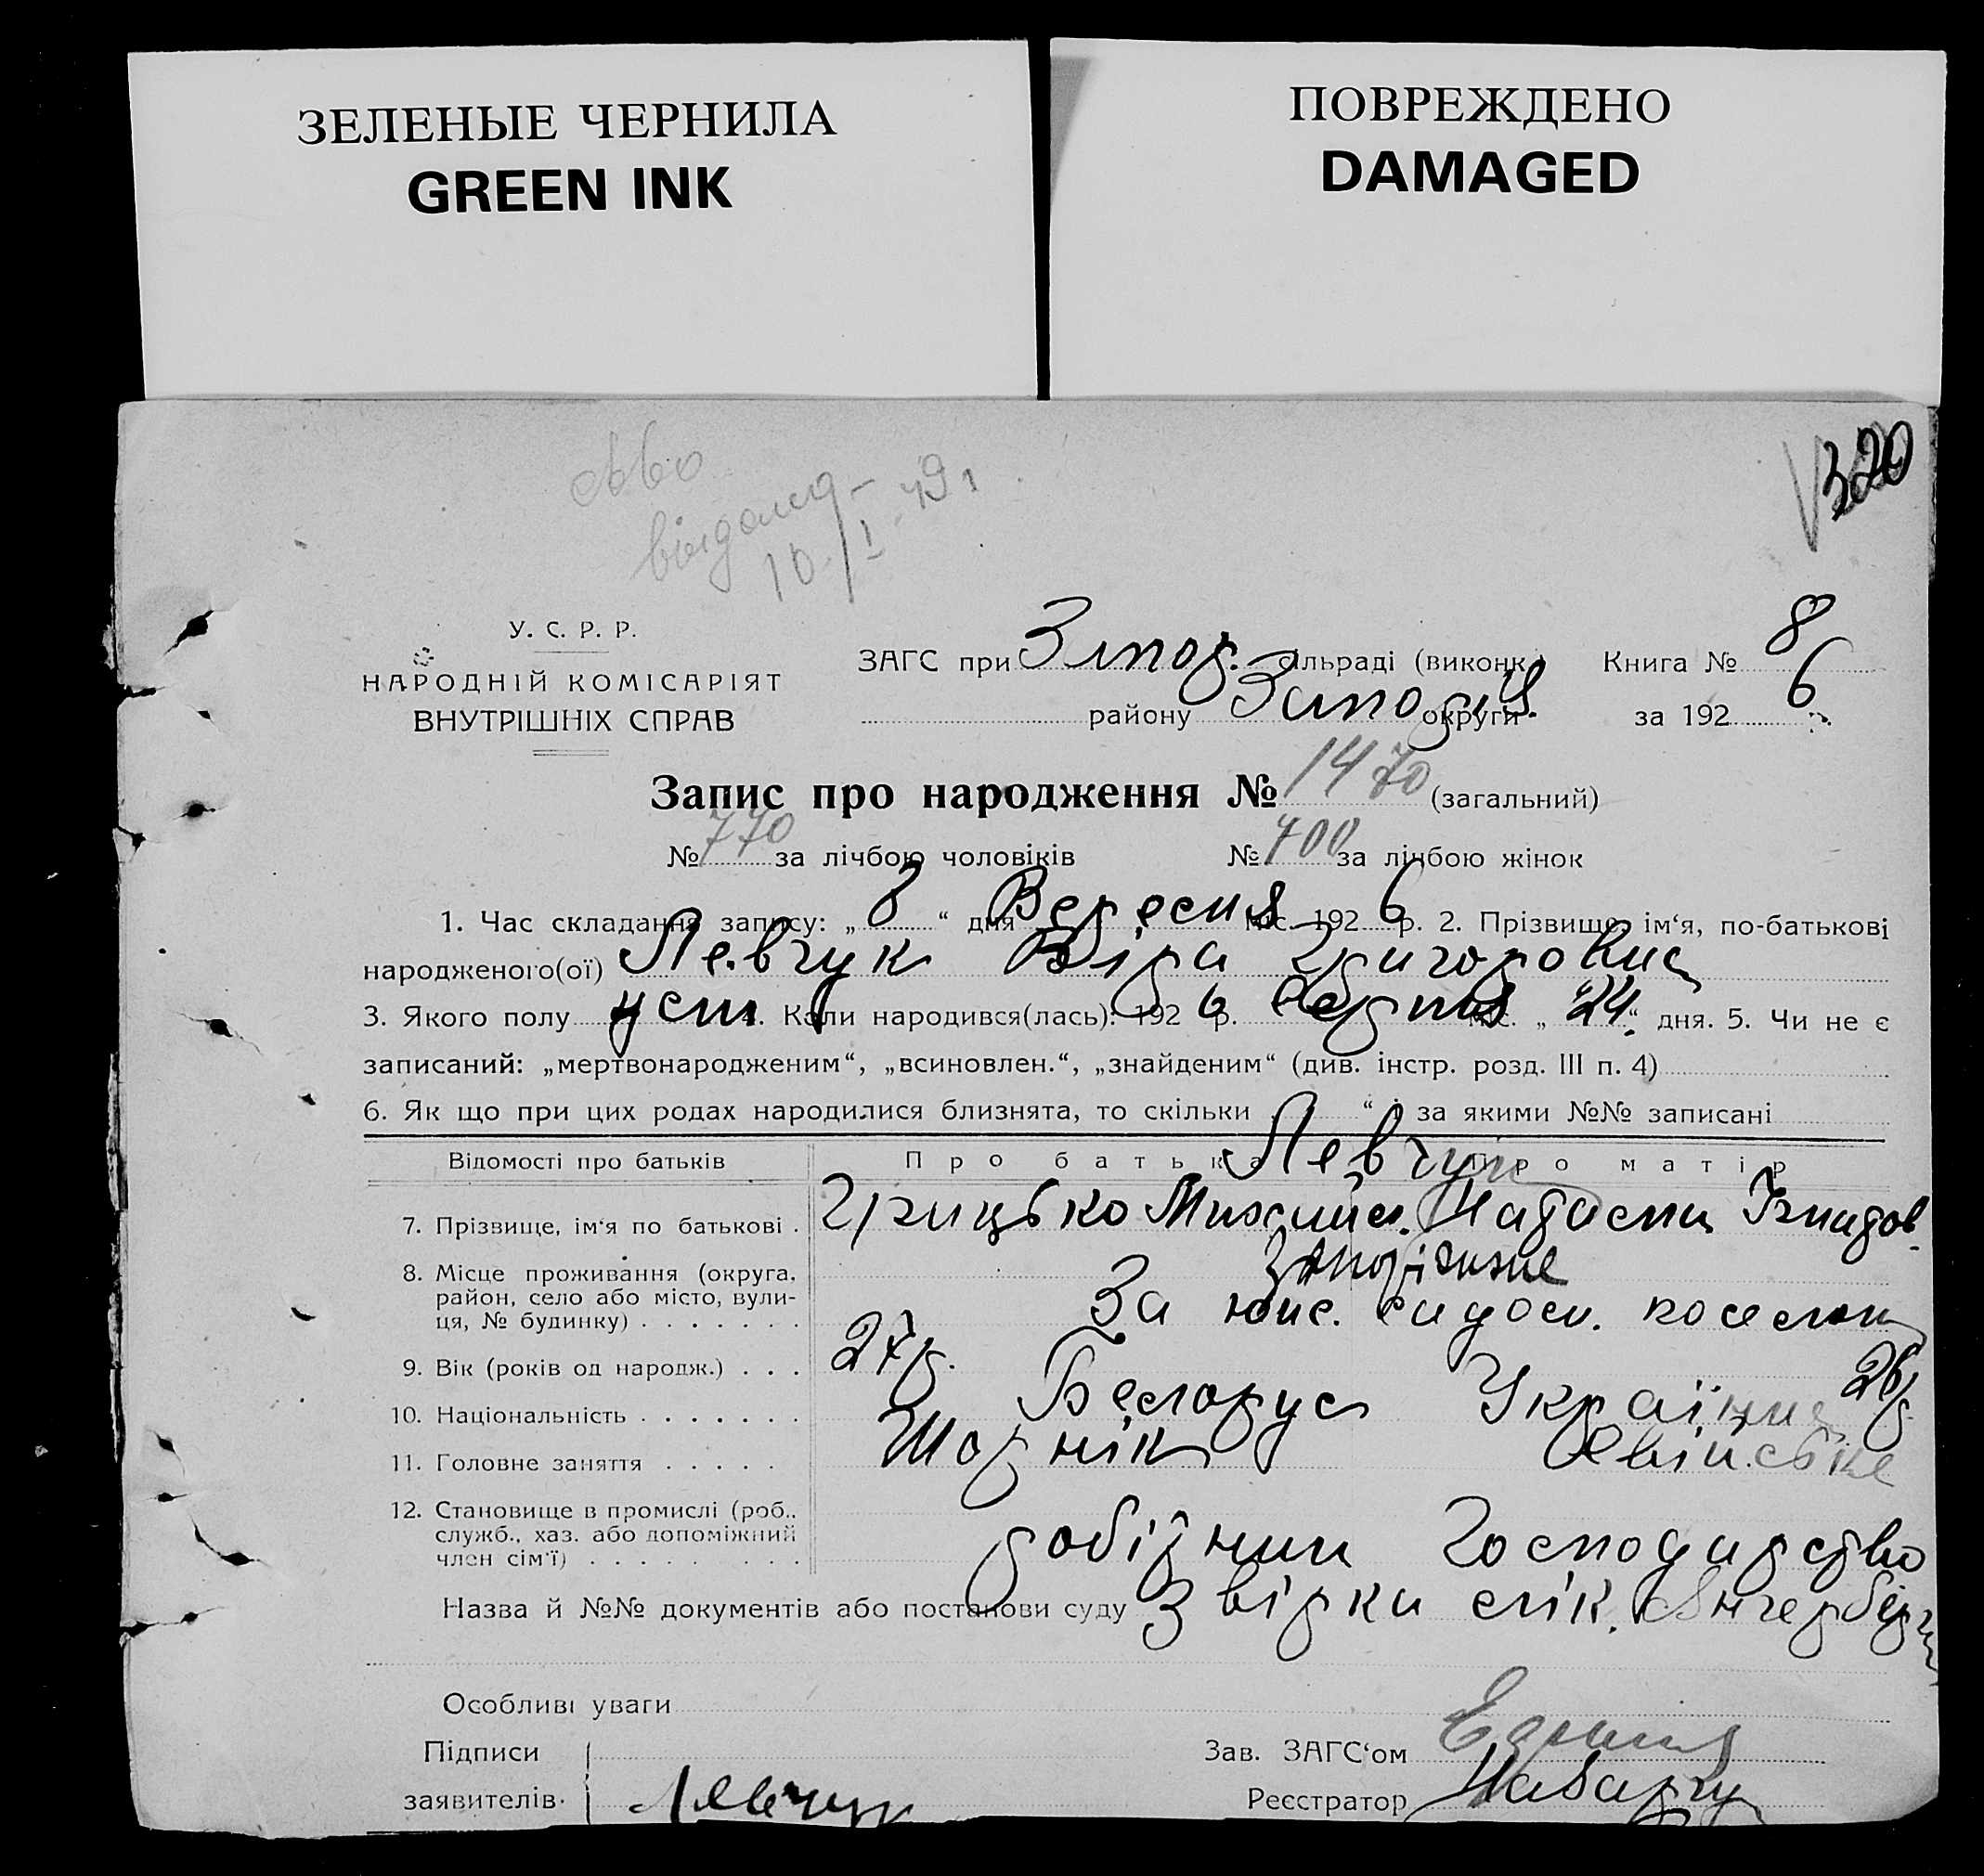 ЗЕЛЕНЫЕ ЧЕРНИЛА
GREEN INK
ПОВРЕЖДЕНО
DAMAGED
320
10/I 49 г
У. С. Р. Р.
НАРОДНІЙ КОМІСАРІЯТ
ВНУТРІШНІХ СПРАВ
ЗАГС при Запор. сільраді (виконк.) Книга № 8
району округи за 192 6
Запис про народження № 1470 (загальний)
№ 770 за лічбою чоловіків № 700 за лічбою жінок
1. Час складання запису: „ 8 “ дня Вересня міс. 192 6 р. 2. Прізвище, ім‘я, по-батькові
народженого(ої) Левчук Віра Григоровна
3. Якого полу жет 4. Коли народився(лась): 192 6 р. Серпня міс. „ 24 “ дня. 5. Чи не є
записаний: „мертвонародженим“, „всиновлен.“, „знайденим“ (див. інстр. розд. III п. 4)
6. Як що при цих родах народилися близнята, то скільки “ і за якими №№ записані
Відомості про батьків Про батька Про матір
Левчук
7. Прізвище, ім‘я по батькові . Грицько Михайл.
8. Місце проживання (округа,
район, село або місто, вули-
ця, № будинку) . . . . . . . Запоріжжє
За
9. Вік (років од народж.) . . . 27 р. 26 р.
10. Національність . . . . . . . Белорус Українка
11. Головне заняття . . . . . Шорнік
12. Становище в промислі (роб.,
служб., хаз. або допоміжний
член сім‘ї) . . . . . . . . . робітник Господарство
Назва й №№ документів або постанови суду Звірки лік.
Особливі уваги
Підписи
заявителів. Левчук
Зав. ЗАГС‘ом
Реєстратор